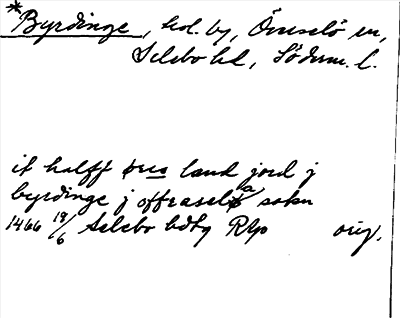 *Byrdinge, hel. by, Överselö sn,
Selebo hd, Söderm. l.
it halfft öres land jord j
byrdinge j offraselø a sokn
1466 19/6 Selebo hdtg RAp orig.